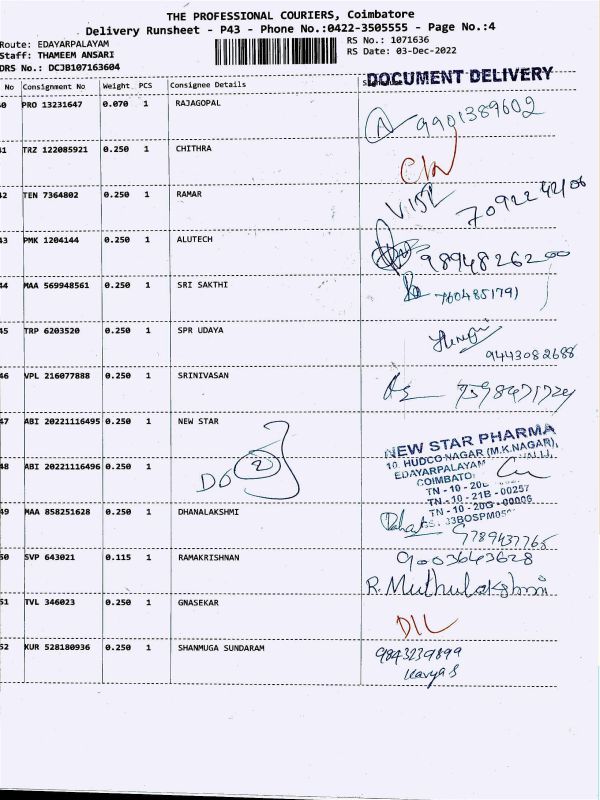 THE PROFESSIONAL COURIERS, Coimbatore
Delivery Runsheet - P43 - Phone No.:0422-3505555 - Page No.:4
Route: EDAYARPALAYAM RS No.: 1071636
Staff: THAMEEM ANSARI RS Date: 03-Dec-2022
DRS No.: DCJB107163604
DOCUMENT DELIVERY
No Consignment No Weight PCS Consignee Details
0 PRO 13231647 0.070 1 RAJAGOPAL
9901389602
41 TRZ 122085921 0.250 1 CHITHRA
42 TEN 7364802 0.250 1 RAMAR
43 PMK 1204144 0.250 1 ALUTECH
9894826200
44 MAA 569948561 0.250 1 SRI SAKTHI
7604851791
45 TRP 6203520 0.250 1 SPR UDAYA
9443082688
46 VPL 216077888 0.250 1 SRINIVASAN
47 ABI 20221116495 0.250 NEW STAR
NEW STAR PHARMA
10, HUDCO NAGAR (M.K.NAGAR),
EDAYARPALAYAM
COIMBATO
48 ABI 20221116496 0.250
DO 2
TN - 10 - 20
TN - 10 - 21B - 00257
TN - 10 - 20G - 00006
49 MAA 858251628 0.250 1 DHANALAKSHMI
33BOSPM05
7789437765
50 SVP 643021 0.115 1 RAMAKRISHNAN
9003643628
R. Muthulakshmi
51 TVL 346023 0.250 1 GNASEKAR
DIL
52 KUR 528180936 0.250 1 SHANMUGA SUNDARAM
9843239899
Kavya S